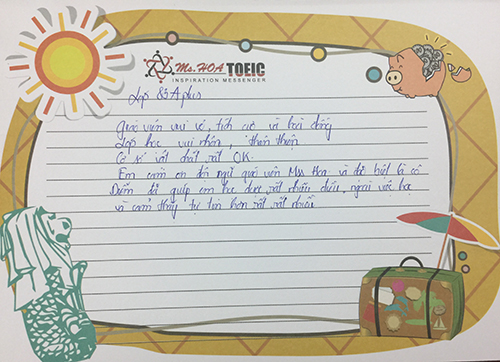 Ms.HOA TOEIC
INSPIRATION MESSENGER
Lớp 83A plus
Giáo viên vui vẻ, tích cực và
Lớp học vui nhộn, thân thiện
Cơ sở vật chất rất OK.
Em cảm ơn đội ngũ giáo viên Ms Hoa và đặc biệt là cô
Diễm đã giúp em học được rất nhiều điều, ngoài việc học
và cảm thấy tự tin hơn rất rất nhiều